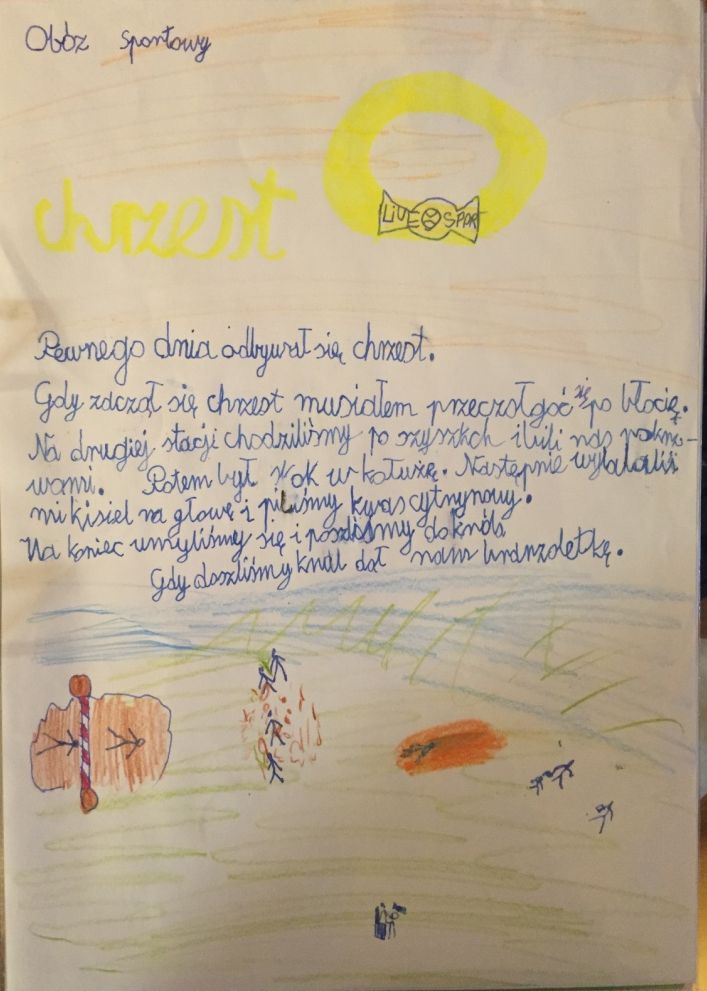 Obóz sportowy
LIVE SPORT
chrzest
Pewnego dnia odbywał się chrzest.
Gdy zaczął się chrzest musiałem przeczołgać się po błocie.
Na drugiej stacji chodziliśmy po szyszkch i bili nas pokrzy-
wami. Potem był skok w kałużę. Następnie wylaliśmy
mi kisiel na głowę i piliśmy kwas cytrynowy.
Na koniec umyliśmy się i poszliśmy do króla
Gdy doszliśmy król dał nam branzoletkę.